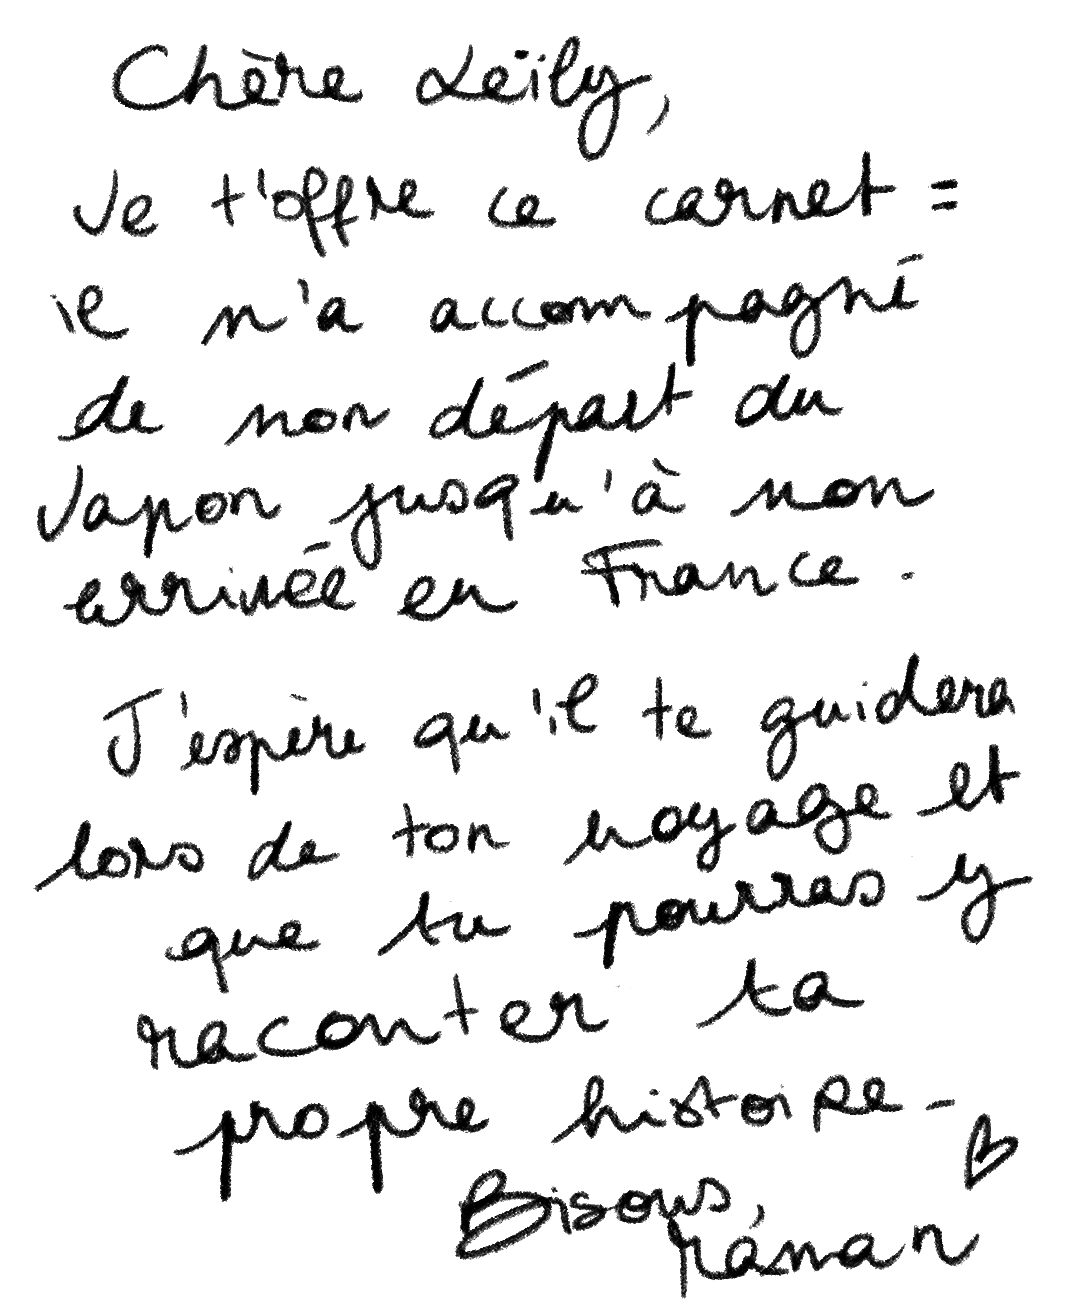 Chère Leïly,
Je t'offre ce carnet =
il m'a accompagné
de mon départ du
Japon jusqu'à mon
arrivée en France.
J'espère qu'il te guidera
lors de ton voyage et
que tu pourras y
raconter ta
propre histoire -
Bisous,
Maman